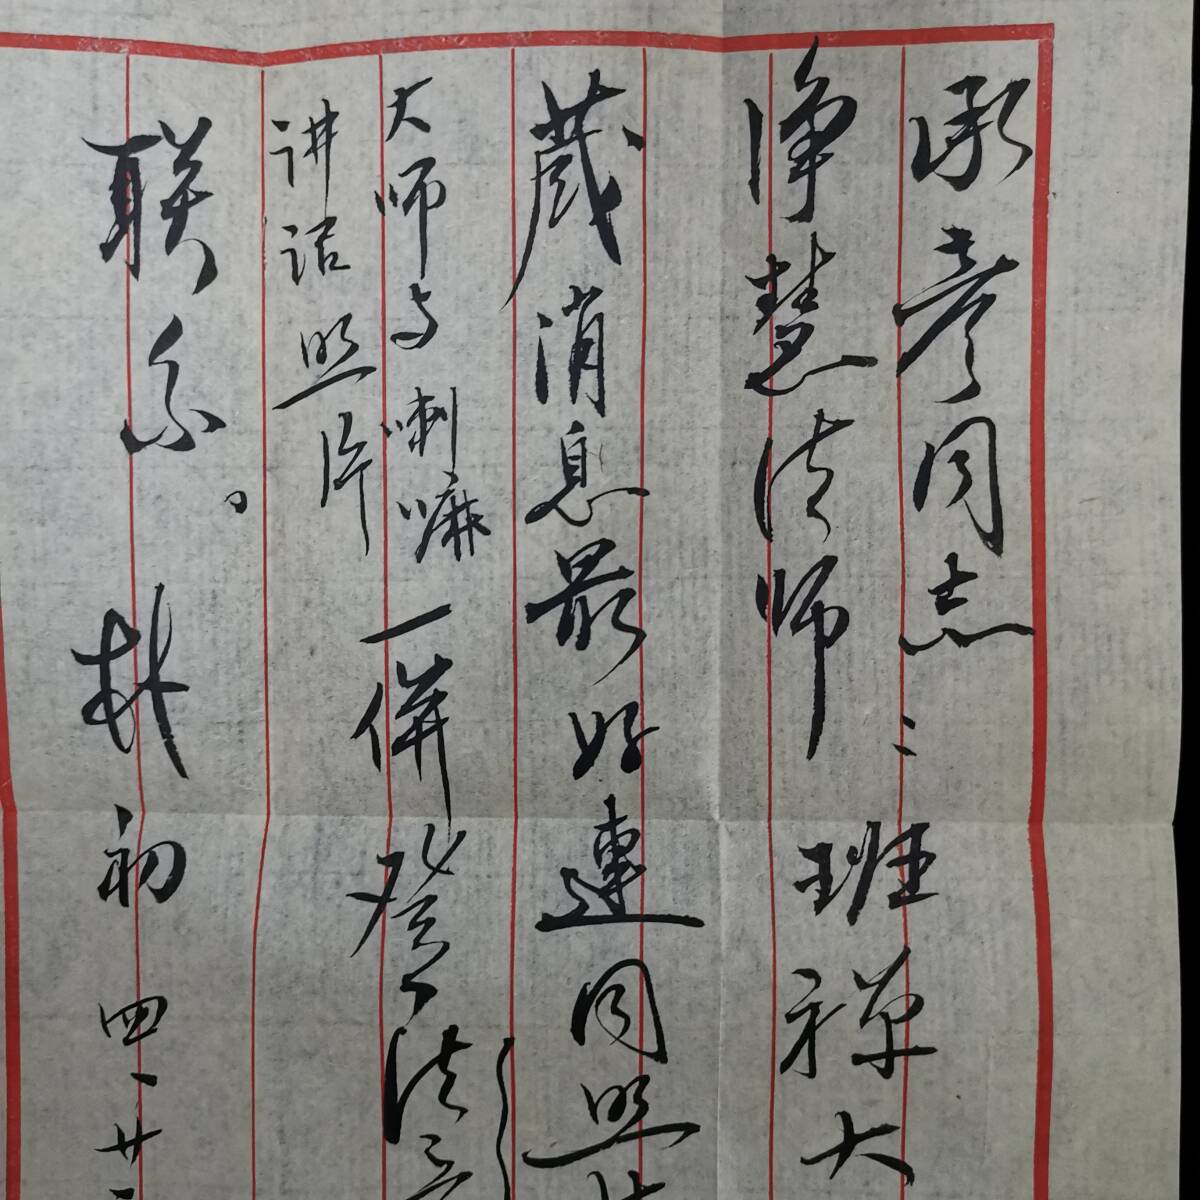 承彦同志：
净慧法师　班禅大
藏消息最好连同照片
大师与喇嘛
讲话照片
一併登法音
联系。
朴初　四、廿二